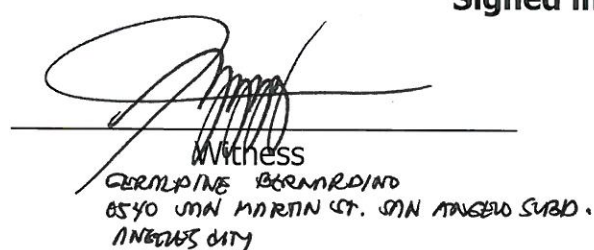 Signed in
Witness
GERALDINE BERNARDINO
6540 SAN MARTIN ST. SAN ANGELO SUBD.
ANGELES CITY